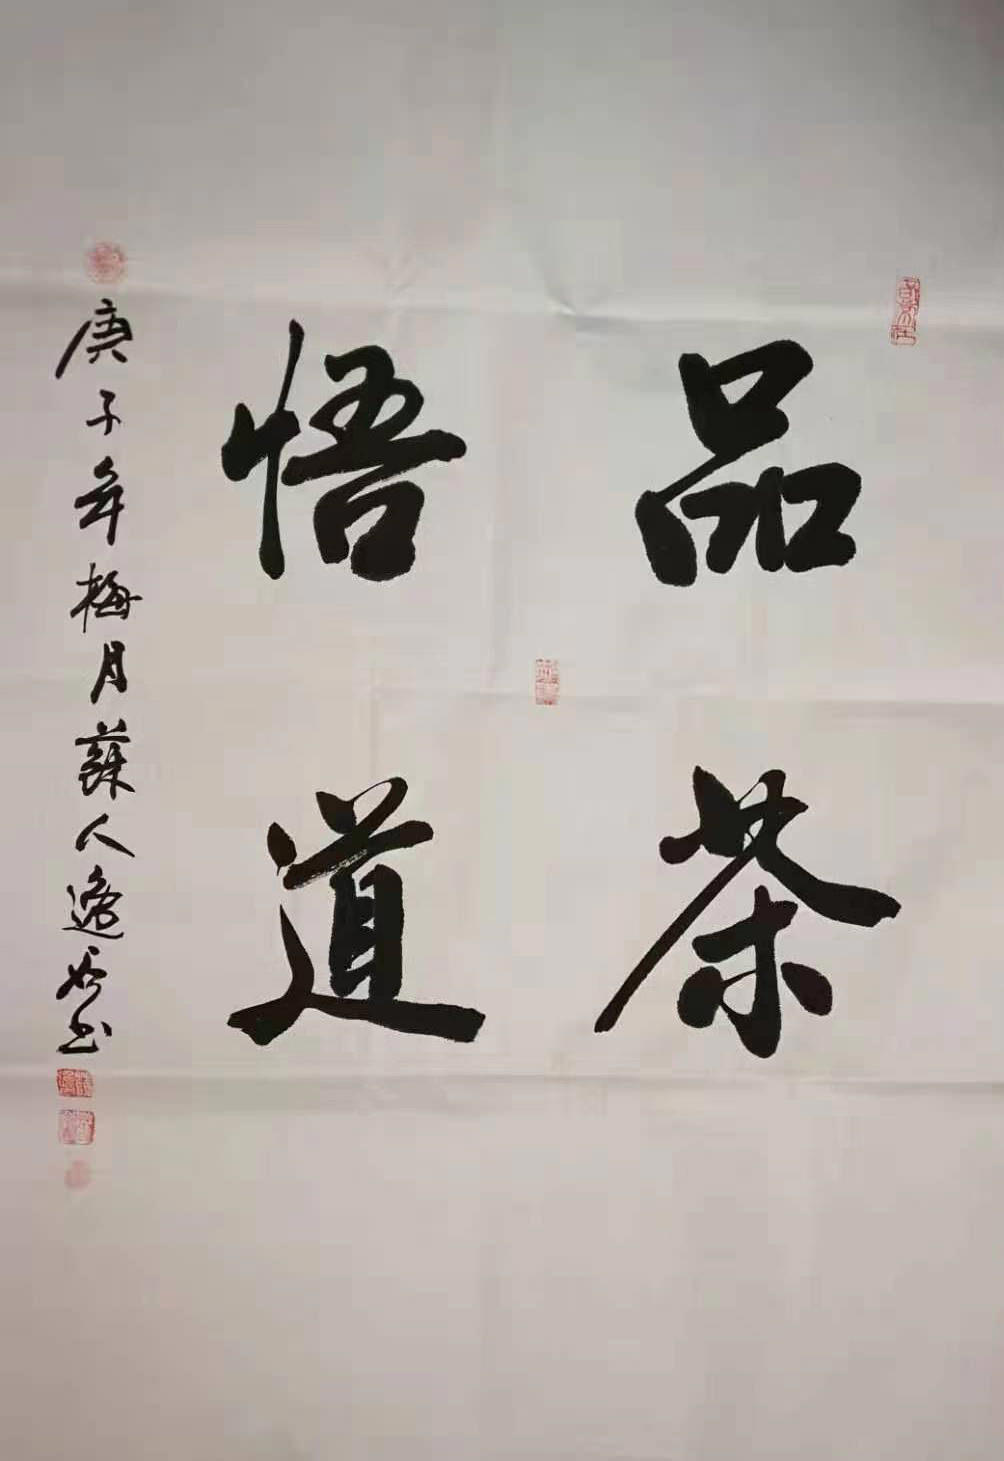 品茶
悟道
庚子年梅月蘇人逸